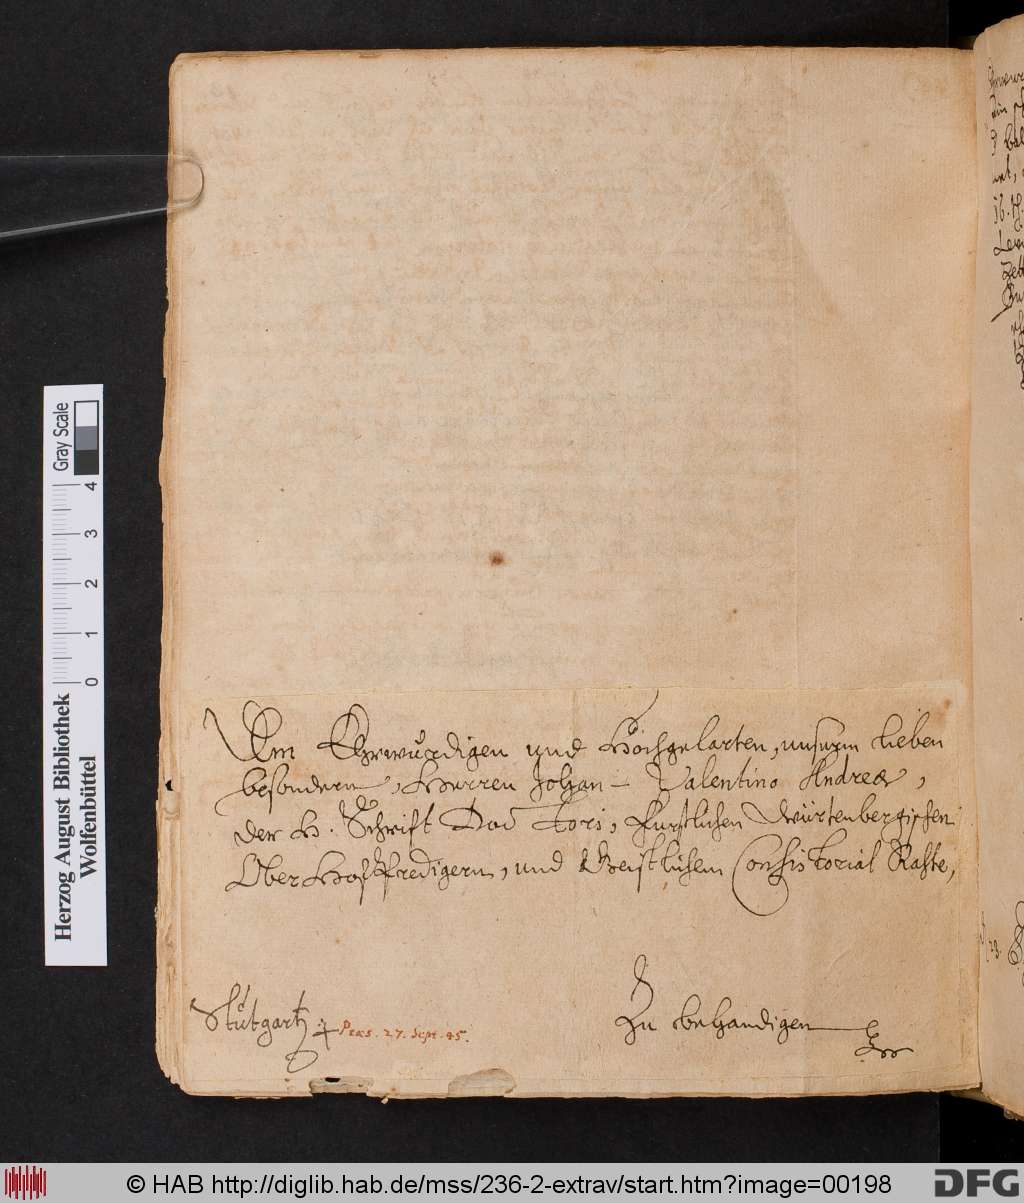 Dem Ehrwürdigen und Hochgelarten, unserm lieben
besondern, Herren Johan- Valentino Andreæ,
der H. Schrift Doctori, Furstlichen Würtenbergischen
Ober HofPredigern, und Geistlichem Consistorial Rahte,
Stutgart
Præs. 27. Sept. 45.
Zu behandigen
Herzog August Bibliothek
Wolfenbüttel
0 1 2 3 4
Gray Scale
© HAB http://diglib.hab.de/mss/236-2-extrav/start.htm?image=00198
DFG